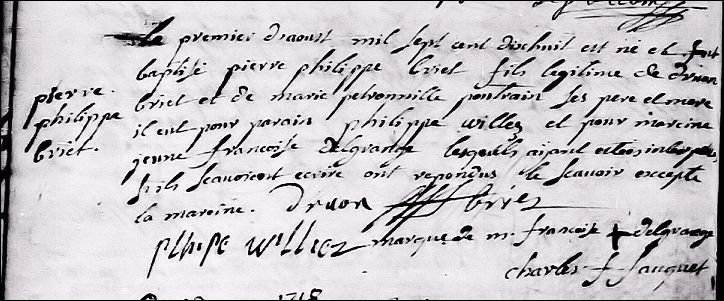 Le premier daoust mil sept cent dischuit est né et fut
baptisé pierre philippe briet fils legitime de druon
briet et de marie petronnille pontrain ses pere et mere
il eut pour parain philippe willez et pour marine
jenne francoise delgrange lesquels aiant estes interpeles
sils scavoient ecrire ont repondus le scavoir excepte
la maroine.
pierre
philippe
briet.
druon briez
philipe williez marque de m. francoise + delgrange
charles f fauquet
1718